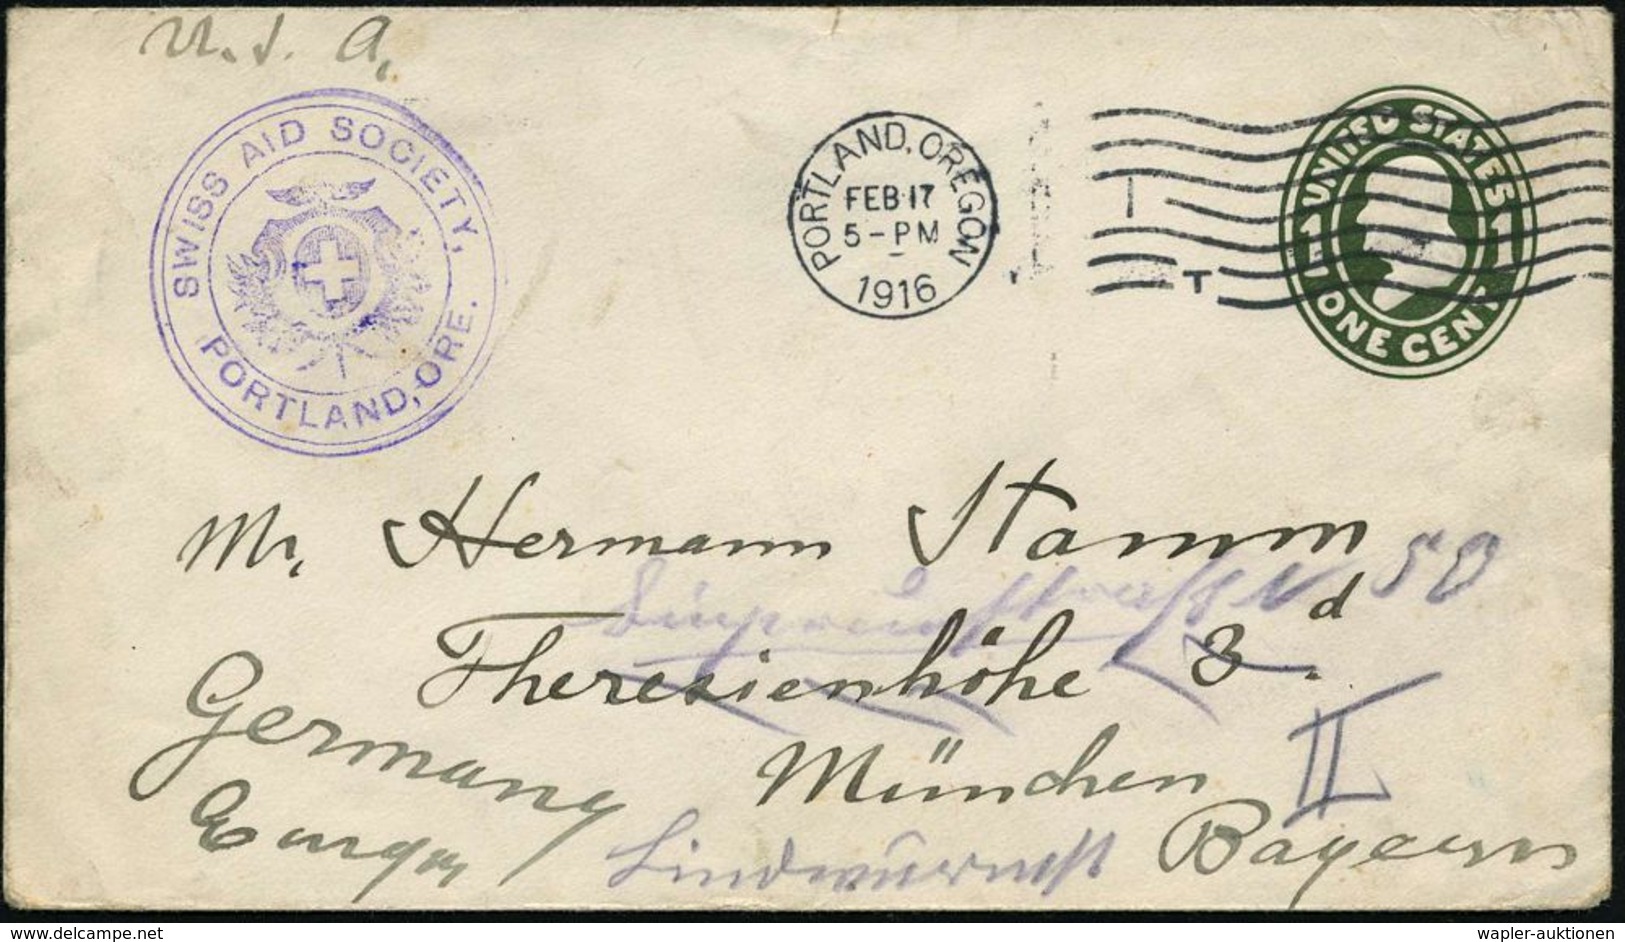 U. S. A.
SWISS AID SOCIETY,
PORTLAND, ORE.
PORTLAND, OREGON
FEB 17
5-PM
1916
T
UNITED STATES
1 1
ONE CENT
Mr. Hermann Stamm
50
Theresienhöhe 3 d.
Germany
München II
Bayern
www.delcampe.net
wapler-auktionen